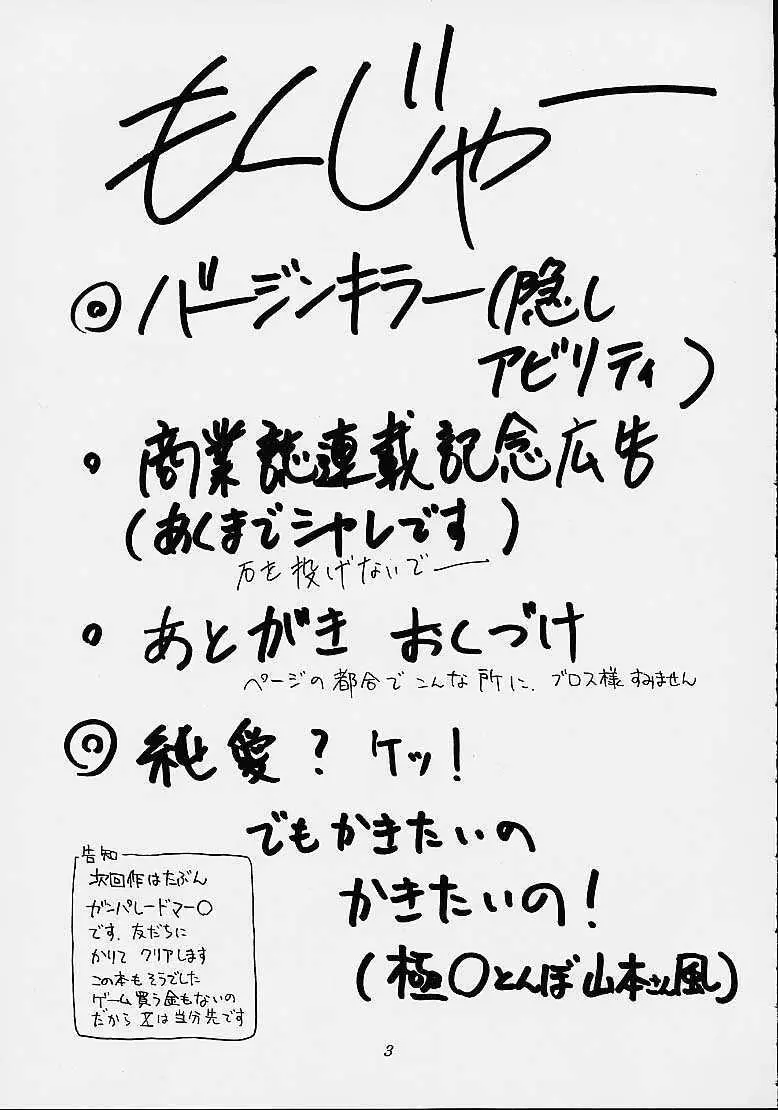 もくじゃー
◎バージンキラー(隠し
アビリティ)
・商業誌連載記念広告
(あくまでシャレです)
石を投げないでー
・あとがき おくづけ
ページの都合でこんな所に、ブロス様すみません
◎純愛? ケッ!
でもかきたいの
かきたいの!
(極〇とんぼ山本さん風)
告知
次回作はたぶん
ガンパレードマー〇
です。友だちに
かりて クリアします
この本もそうでした
ゲーム買う金もないの
だから Xは当分先です
3